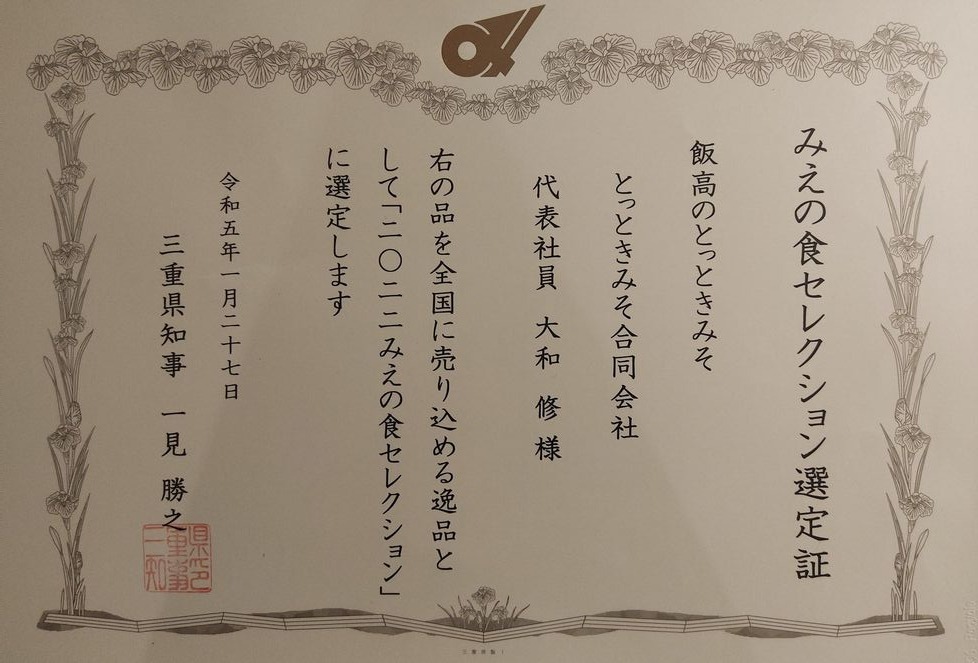 みえの食セレクション選定証
飯高のとっときみそ
とっときみそ合同会社
代表社員 大和 修 様
右の品を全国に売り込める逸品と
して「二〇二二みえの食セレクション」
に選定します
令和五年一月二十七日
三重県知事 一見 勝之